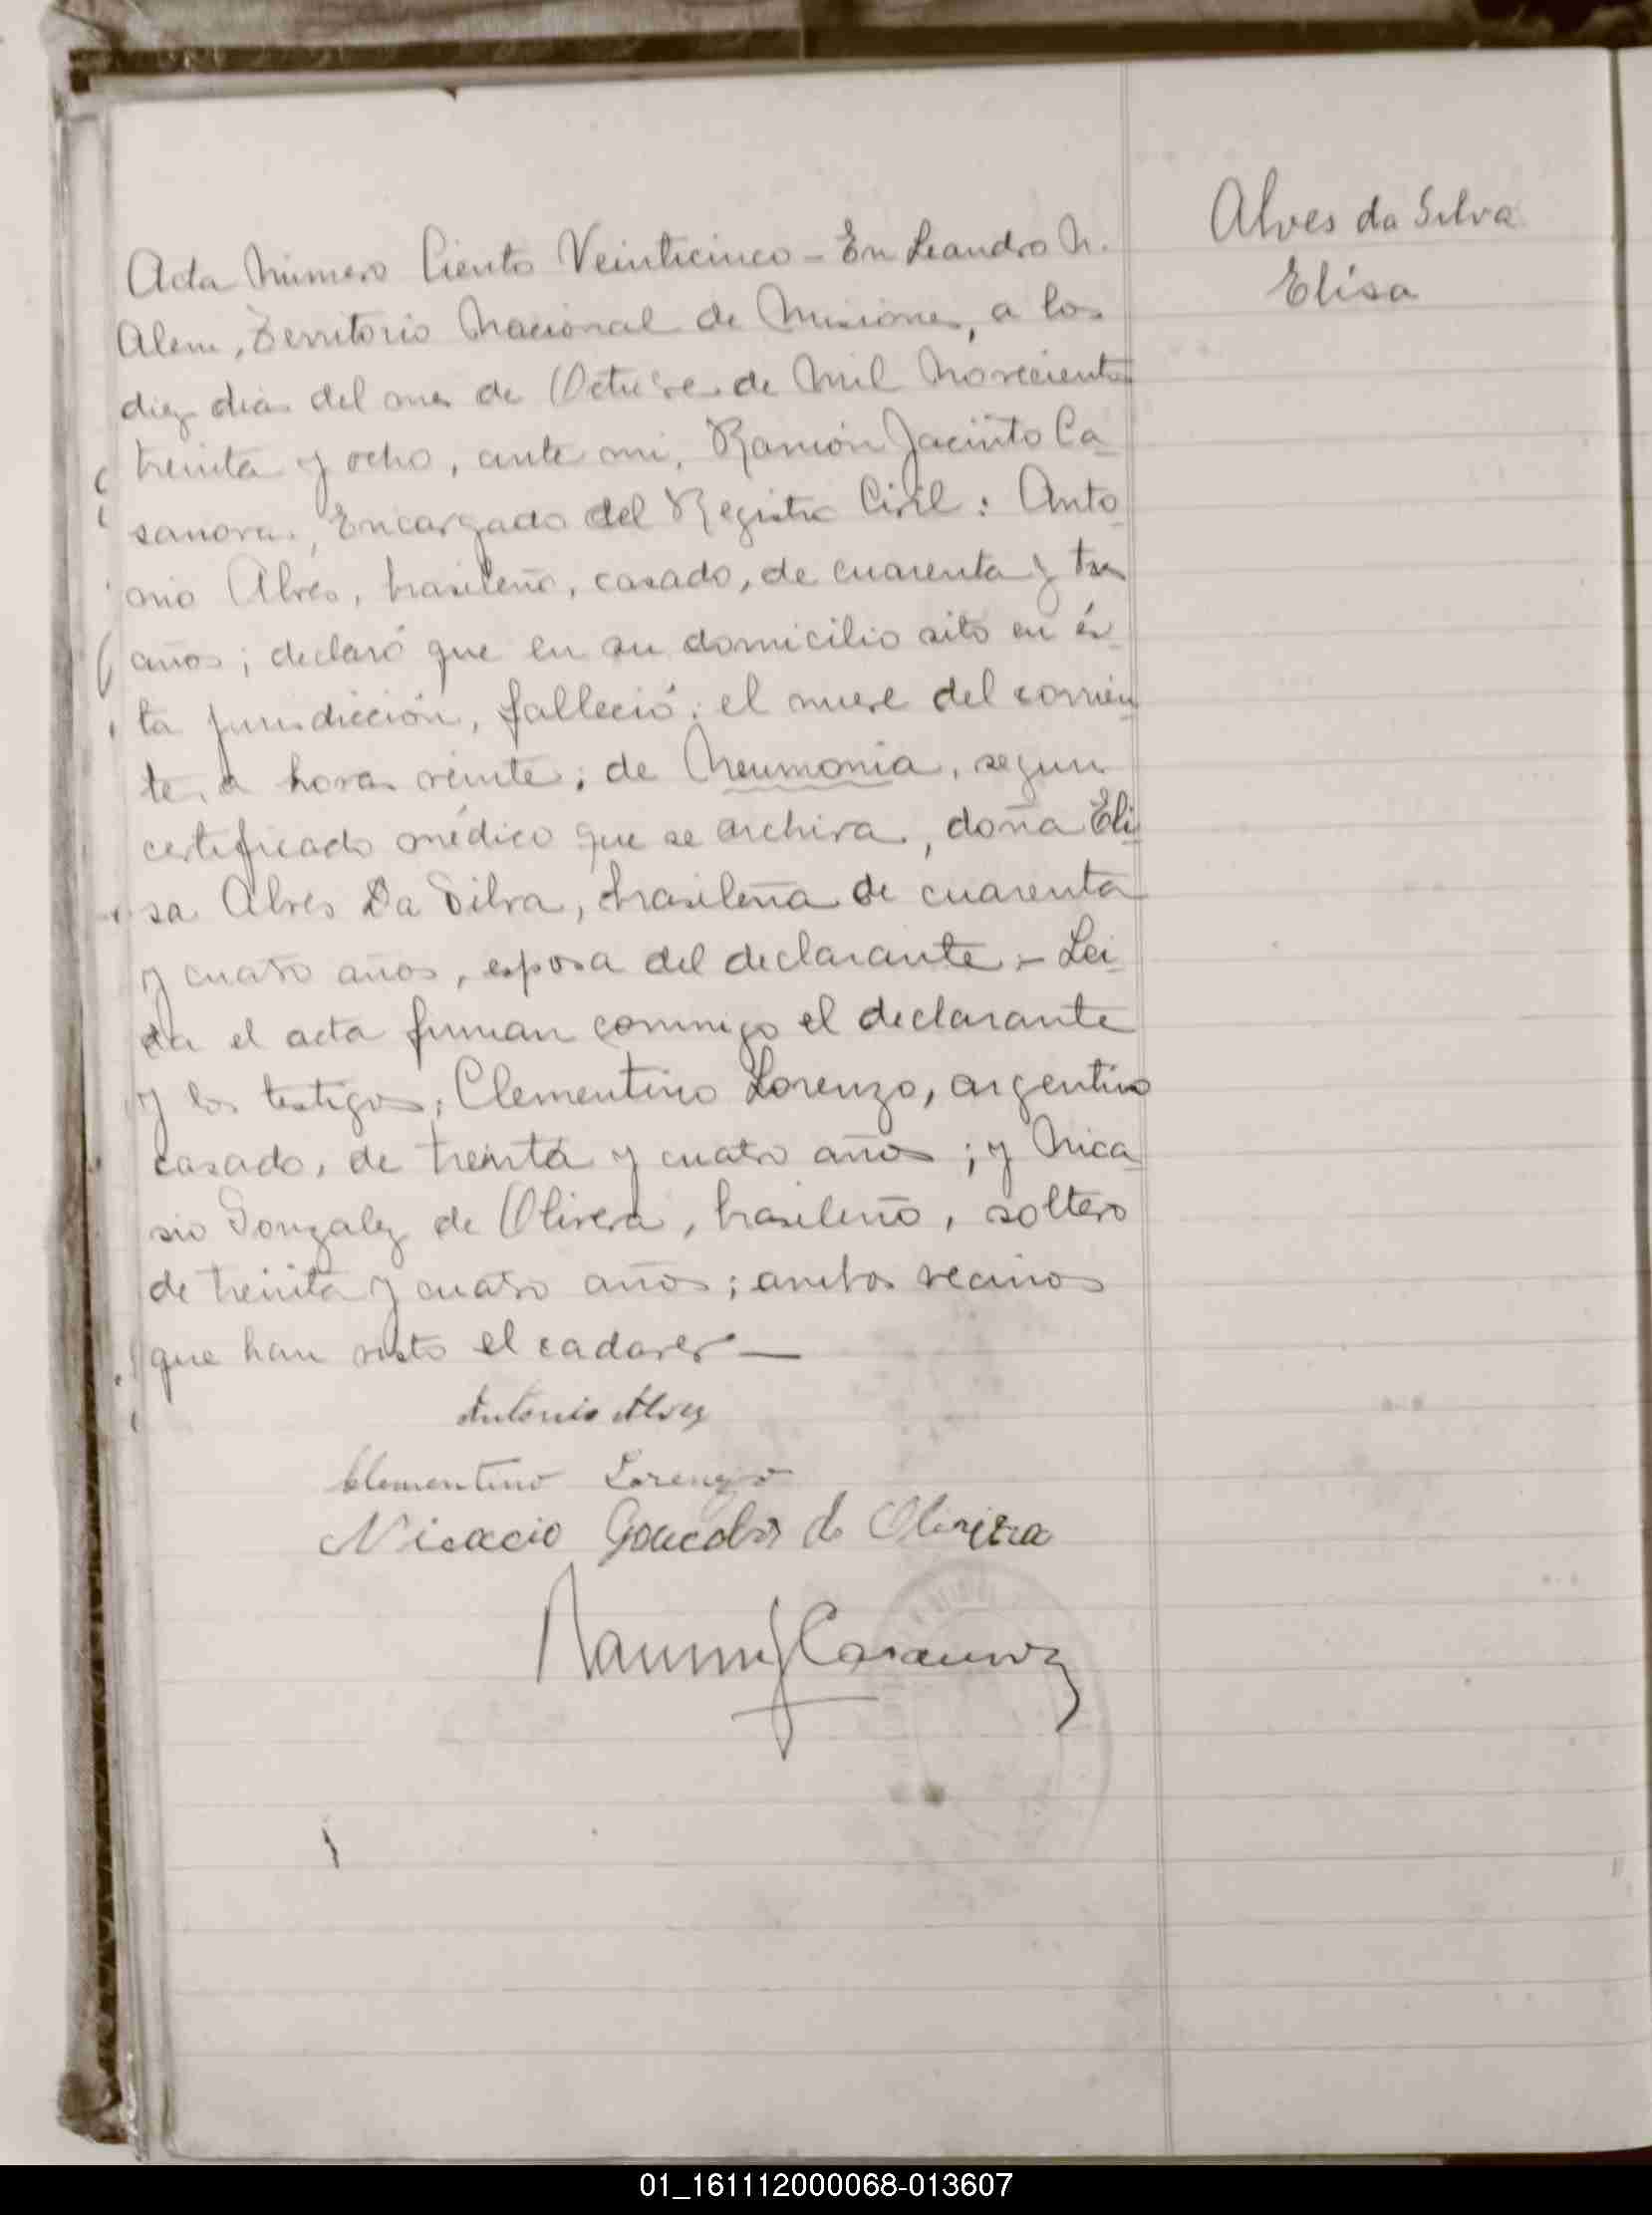 Alves da Silva
Elisa
Acta Número Ciento Veinticinco - En Leandro N.
Alem, Territorio Nacional de Misiones, a los
diez dias del mes de Octubre de Mil Novecientos
treinta y ocho, ante mi, Ramón Jacinto Ca
sanova, Encargado del Registro Civil: Anto
nio Alves, brasileño, casado, de cuarenta y tres
años; declaró que en su domicilio sito en és
ta jurisdicción, falleció: el nueve del corrien
te, a horas veinte; de Neumonia, segun
certificado médico que se archiva, doña Eli
sa Alves Da Silva, brasileña de cuarenta
y cuatro años, esposa del declarante.- Lei
da el acta firman conmigo el declarante
y los testigos; Clementino Lorenzo, argentino
casado, de treinta y cuatro años; y Nica
sio Gonzalez de Olivera, brasileño, soltero
de treinta y cuatro años; ambos vecinos
que han visto el cadaver—
Antonio Alves
Clementino Lorenzo
Nicacio de Oliveira
Ramón J Casanova
01_161112000068-013607